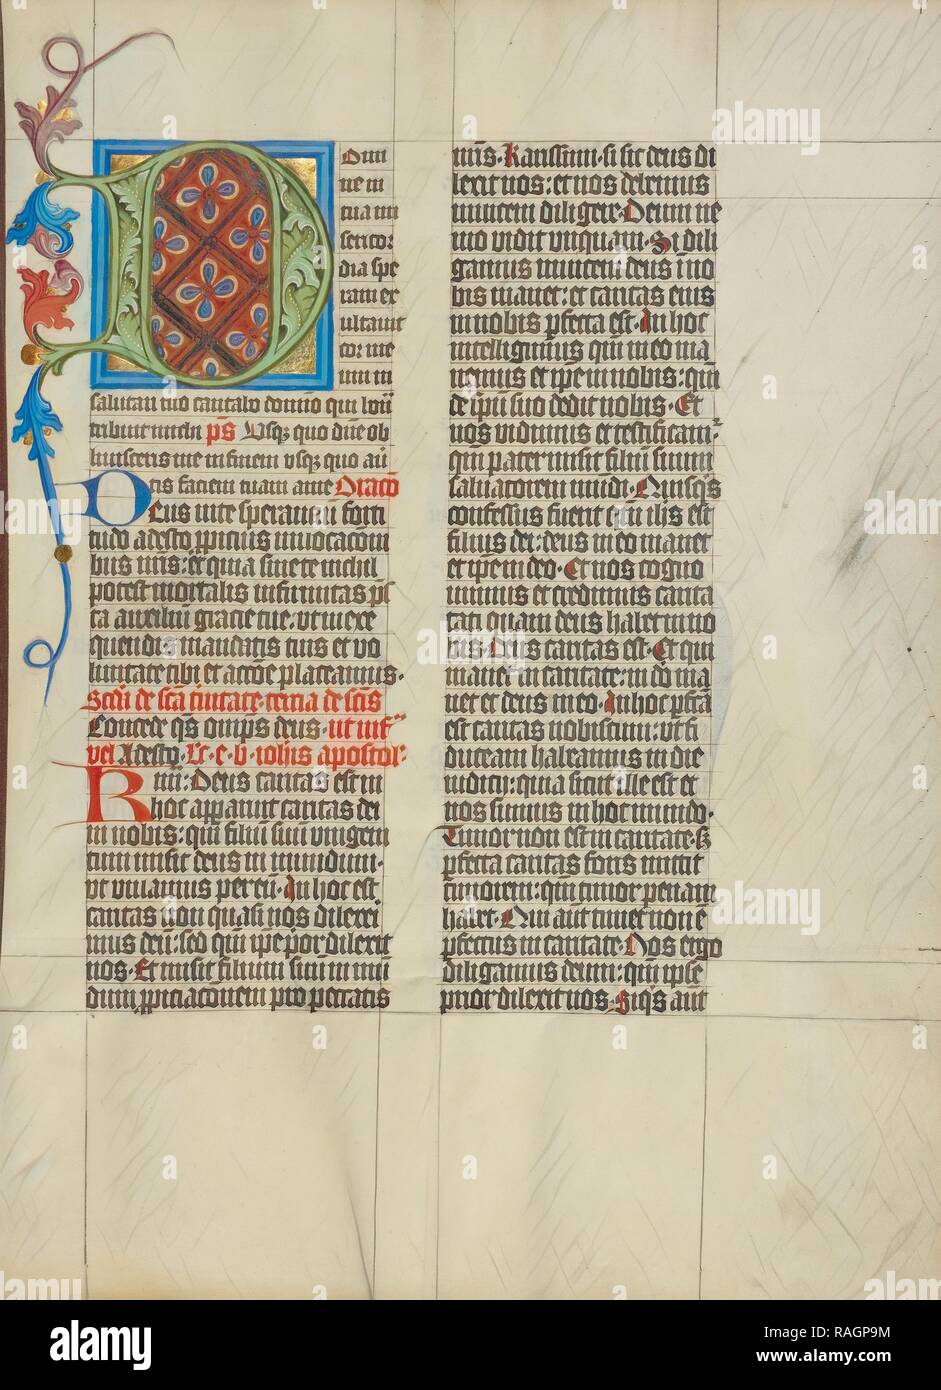 D omi
ne in
tua mi
sericor
dia spe
raui ex
ultauit
cor me
um in
salutari tuo cantabo domino qui bona
tribuit michi ps Usqz quo dne ob
liuisceris me in finem usqz quo auer
tis faciem tuam a me Oracio
Deus in te sperantium forti
tudo adesto ppicius inuocacioni
bus nris: et quia sine te nichil
potest mortalis infirmitas ps
ta auxilium gracie tue: vt in exe
quendis mandatis tuis et vo
luntate tibi et accoe placeamus.
de sca trinitate tercia de scis
Concede qs omps deus. ut
vel Adesto. Lc. e. b. iohis apostoli.
Rmi: Deus caritas est in
hoc apparuit caritas dei
in nobis: qm filiu suu vnigeni
tum misit deus in mundum.
vt viuamus per eu. In hoc est
caritas non quasi nos dilexeri
mus deu: sed qm ipe prior dilexit
nos. Et misit filium suu in mu
dum ppiciacionem pro peccatis
nris. Karissimi. si sic deus di
lexit nos: et nos debemus
inuicem diligere. Deum ne
mo vidit vnquam. Si dili
gamus inuicem deus i no
bis manet: et caritas eius
in nobis pfecta est. In hoc
intelligimus qm in eo ma
nemus et ipe in nobis: qm
de spu suo dedit nobis. Et
nos vidimus et testificamur
qm pater misit filiu suum
saluatorem mudi. Quisqs
confessus fuerit qm ihs est
filius dei: deus in eo manet
et ipe in deo. Et nos cogno
uimus et credimus carita
tati quam deus habet in no
bis. Deus caritas est. Et qui
manet in caritate: in do ma
net et deus in eo. In hoc pfcta
est caritas nobiscum: vt fi
duciam habeamus in die
iudicij: quia sicut ille est et
nos sumus in hoc mundo.
Timor non est in caritate. sz
pfecta caritas foris mittit
timorem: qm timor penam
habet. Qui aut timet non e
pfectus in caritate. Nos ergo
diligamus deum: qm ipse
prior dilexit nos. Siqs aut
alamy
alamy stock photo
RAGP9M
www.alamy.com